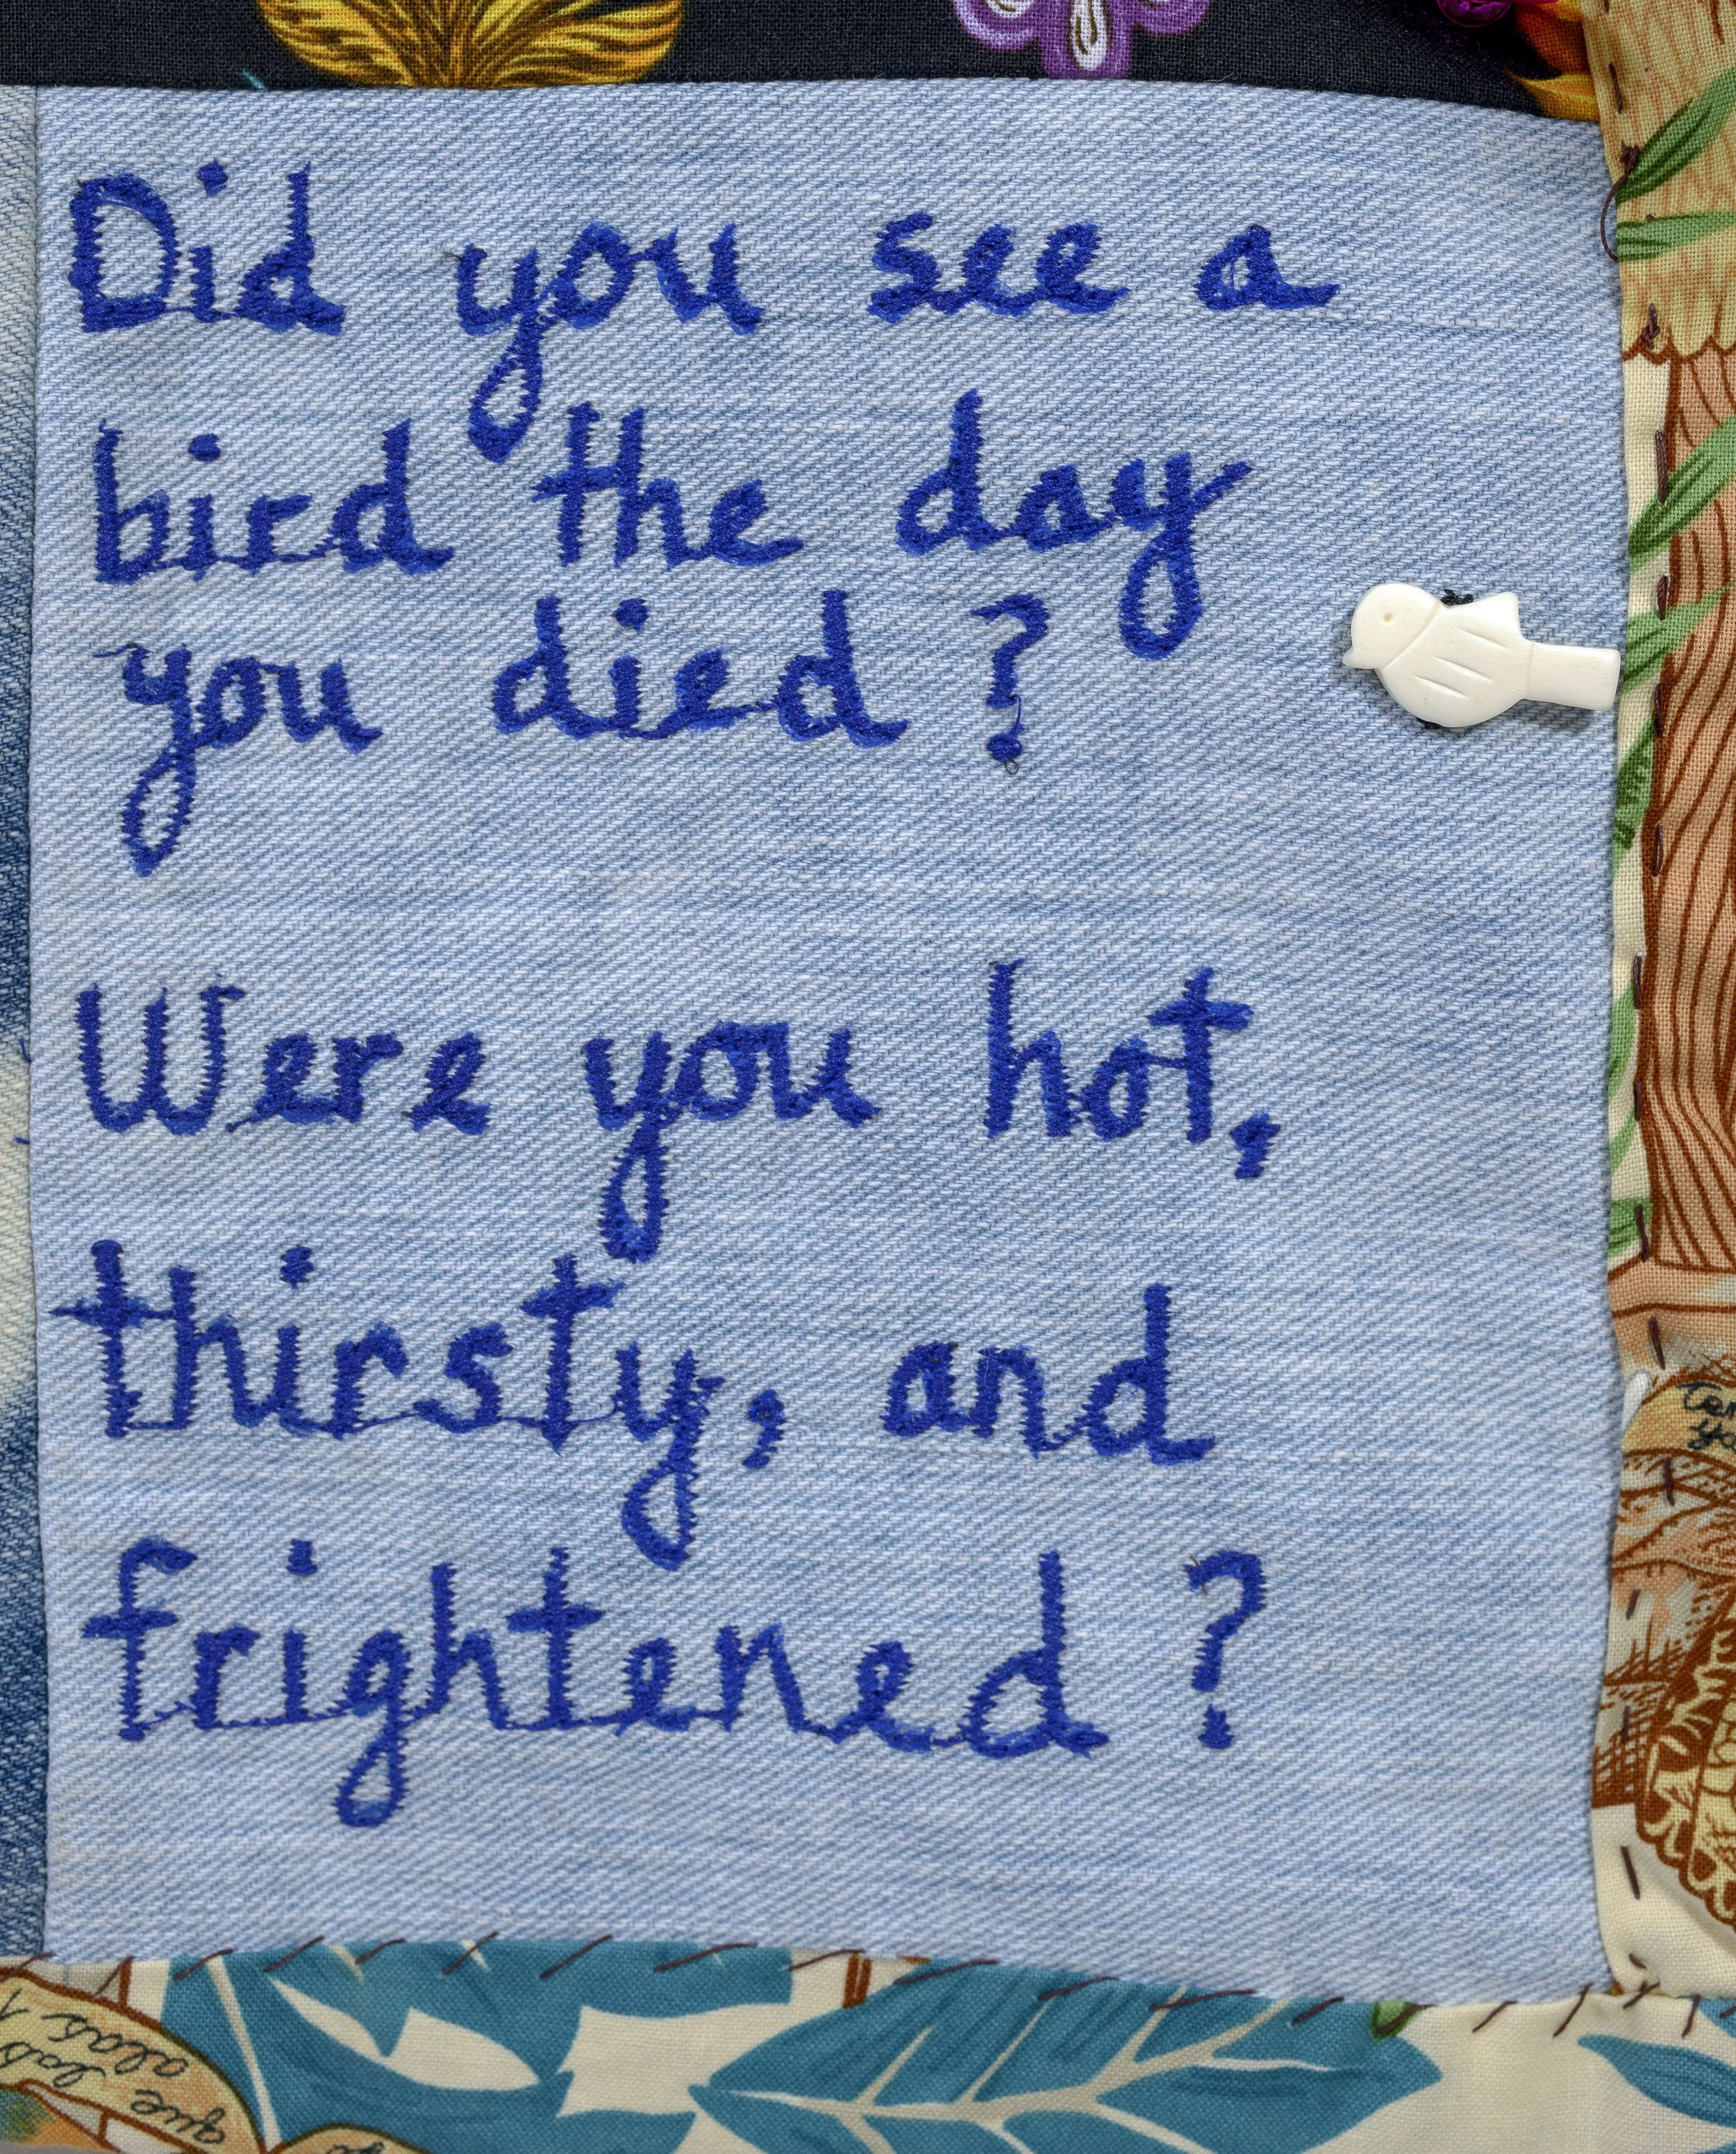 Did you see a
bird the day
you died?
Were you hot,
thirsty, and
frightened?
que las
alas